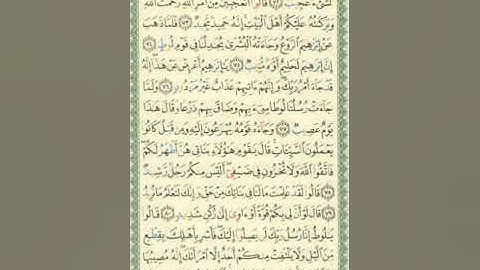 لَشَىْءٌ عَجِيبٌ ﴿٧٢﴾ قَالُوٓا۟ أَتَعْجَبِينَ مِنْ أَمْرِ ٱللَّهِ رَحْمَتُ ٱللَّهِ
وَبَرَكَٰتُهُۥ عَلَيْكُمْ أَهْلَ ٱلْبَيْتِ إِنَّهُۥ حَمِيدٌ مَّجِيدٌ ﴿٧٣﴾ فَلَمَّا ذَهَبَ
عَنْ إِبْرَٰهِيمَ ٱلرَّوْعُ وَجَآءَتْهُ ٱلْبُشْرَىٰ يُجَٰدِلُنَا فِى قَوْمِ لُوطٍ ﴿٧٤﴾
إِنَّ إِبْرَٰهِيمَ لَحَلِيمٌ أَوَّٰهٌ مُّنِيبٌ ﴿٧٥﴾ يَٰٓإِبْرَٰهِيمُ أَعْرِضْ عَنْ هَٰذَآ إِنَّهُۥ
قَدْ جَآءَ أَمْرُ رَبِّكَ وَإِنَّهُمْ ءَاتِيهِمْ عَذَابٌ غَيْرُ مَرْدُودٍ ﴿٧٦﴾ وَلَمَّا
جَآءَتْ رُسُلُنَا لُوطًا سِىٓءَ بِهِمْ وَضَاقَ بِهِمْ ذَرْعًا وَقَالَ هَٰذَا
يَوْمٌ عَصِيبٌ ﴿٧٧﴾ وَجَآءَهُۥ قَوْمُهُۥ يُهْرَعُونَ إِلَيْهِ وَمِن قَبْلُ كَانُوا۟
يَعْمَلُونَ ٱلسَّيِّـَٔاتِ قَالَ يَٰقَوْمِ هَٰٓؤُلَآءِ بَنَاتِى هُنَّ أَطْهَرُ لَكُمْ
فَٱتَّقُوا۟ ٱللَّهَ وَلَا تُخْزُونِ فِى ضَيْفِىٓ أَلَيْسَ مِنكُمْ رَجُلٌ رَّشِيدٌ ﴿٧٨﴾
قَالُوا۟ لَقَدْ عَلِمْتَ مَا لَنَا فِى بَنَاتِكَ مِنْ حَقٍّ وَإِنَّكَ لَتَعْلَمُ مَا نُرِيدُ
﴿٧٩﴾ قَالَ لَوْ أَنَّ لِى بِكُمْ قُوَّةً أَوْ ءَاوِىٓ إِلَىٰ رُكْنٍ شَدِيدٍ ﴿٨٠﴾ قَالُوا۟
يَٰلُوطُ إِنَّا رُسُلُ رَبِّكَ لَن يَصِلُوٓا۟ إِلَيْكَ فَأَسْرِ بِأَهْلِكَ بِقِطْعٍ
مِّنَ ٱلَّيْلِ وَلَا يَلْتَفِتْ مِنكُمْ أَحَدٌ إِلَّا ٱمْرَأَتَكَ إِنَّهُۥ مُصِيبُهَا